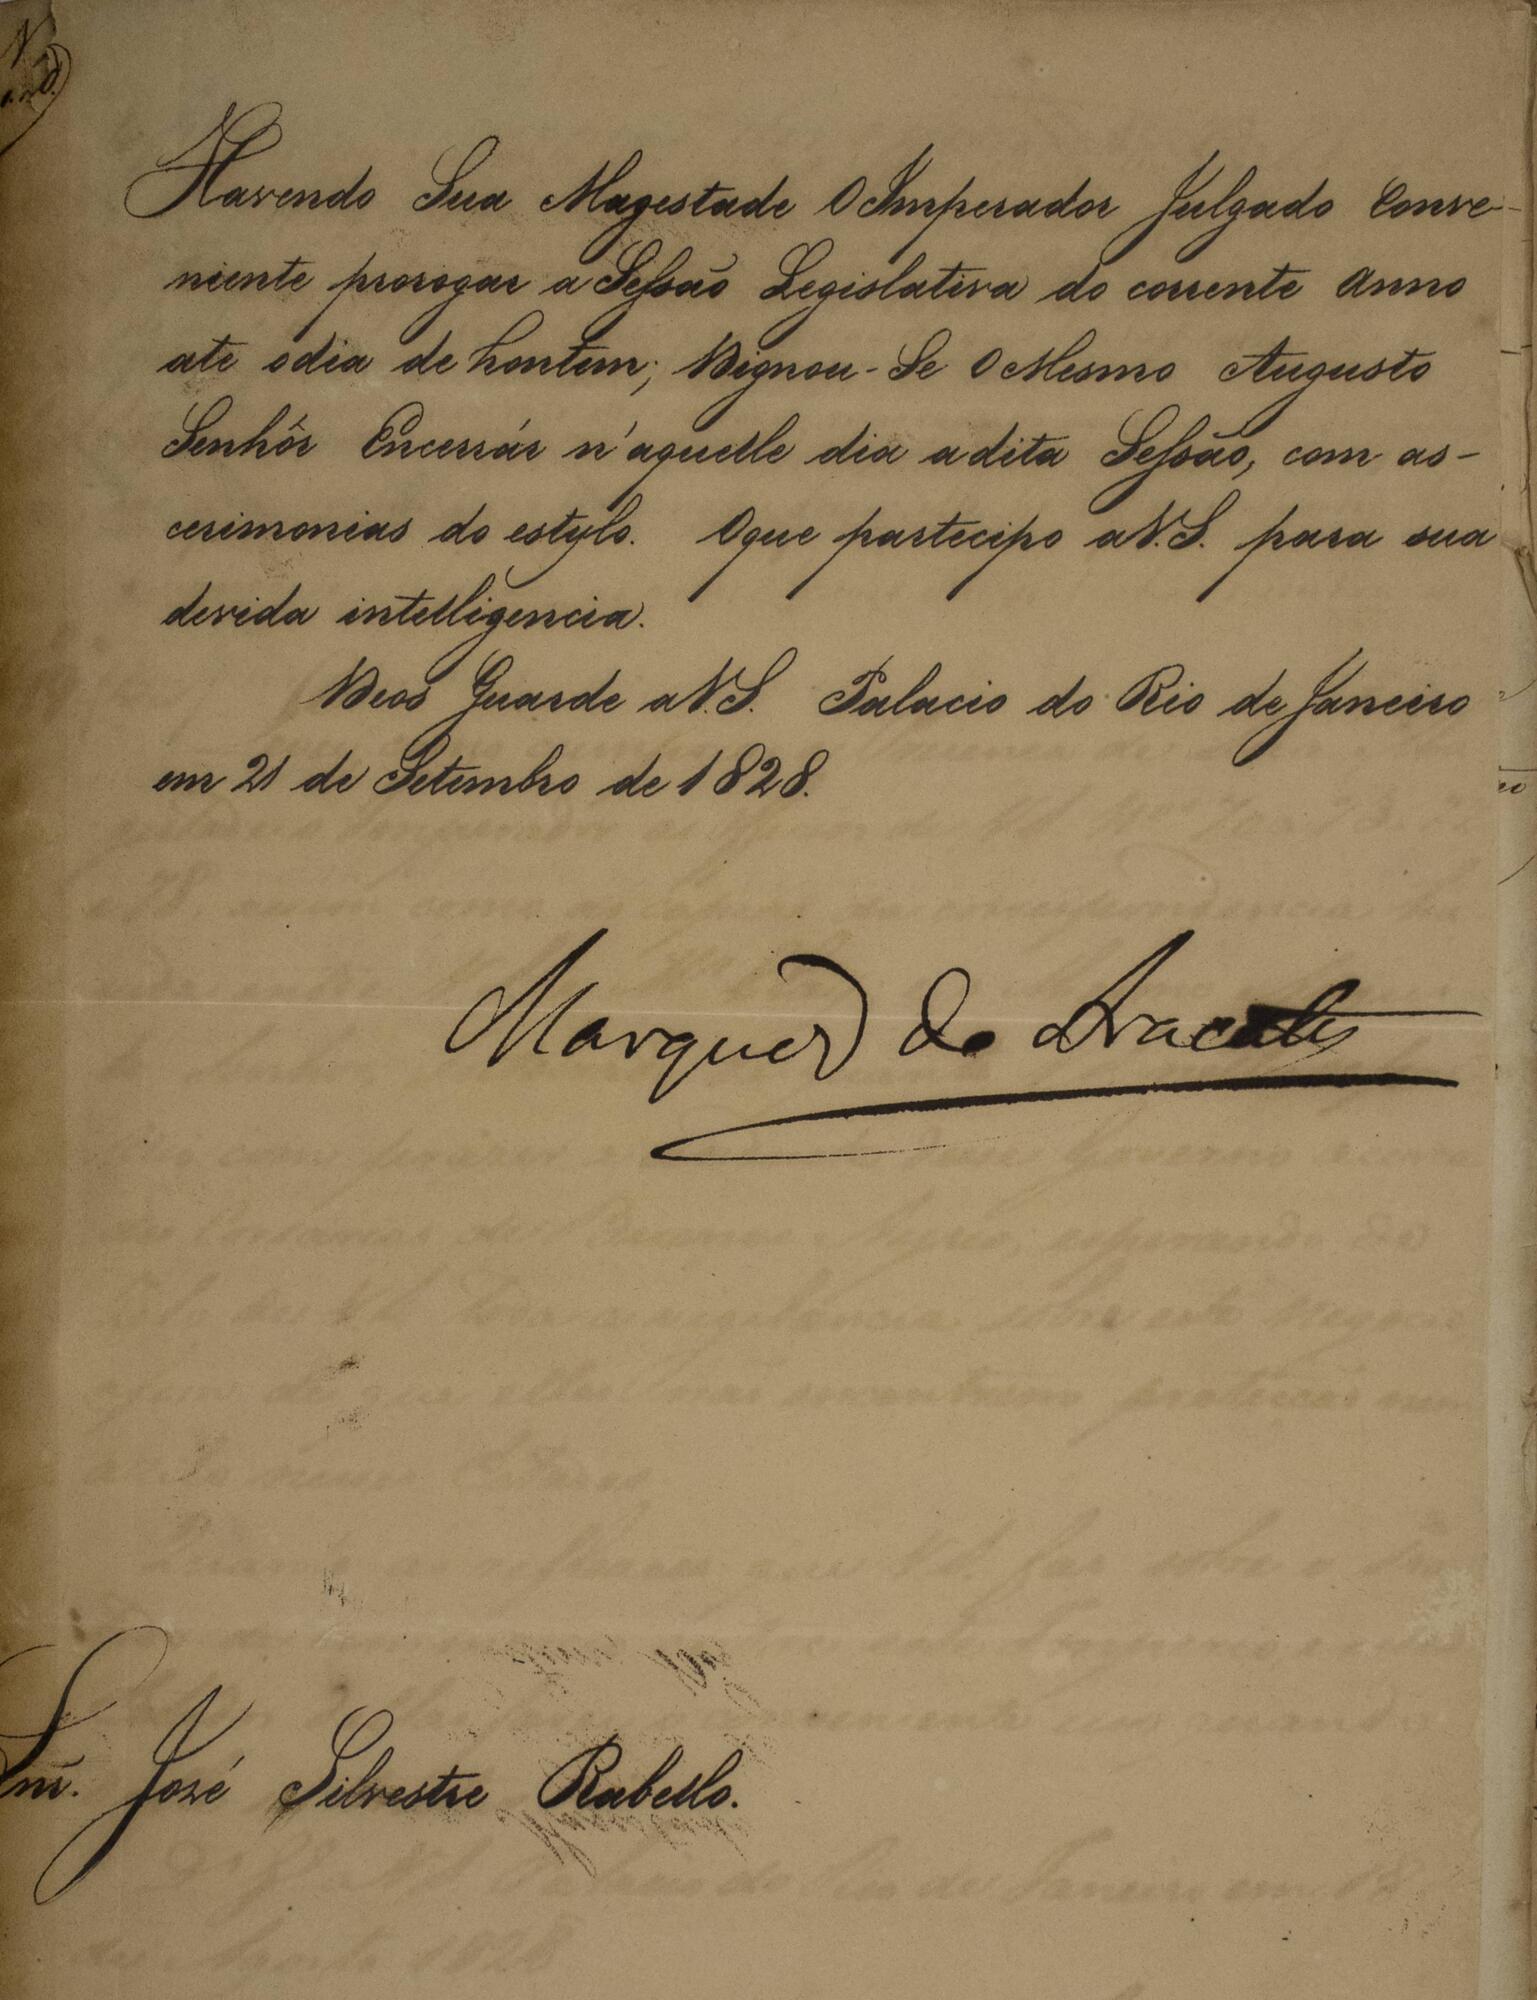 Havendo Sua Magestade O Imperador Julgado Conve-
niente prorogar a Sessão Legislativa do corrente Anno
ate o dia de hontem; Dignou-Se O Mesmo Augusto
Senhôr Encerrár n'aquelle dia a dita Sessão, com as-
cerimonias do estylo. O que partecipo a V.S. para sua
devida intelligencia.
Deos Guarde a V.S. Palacio do Rio de Janeiro
em 21 de Setembro de 1828.
Marquez do Aracaty
Snr. José Silvestre Rabello.